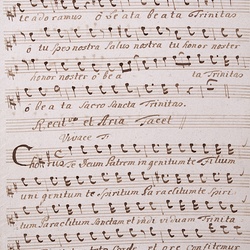 te adoramus O beata beata Trinitas
o tu spes nostra Salus nostra tu honor noster
honor noster o bea ta Trinitas
o beata Sacro Sancta Trinitas.
Recit: et Aria Tacet
Vivace
Chorus Te Deum Patrem ingenitum te Filium
unigenitum te Spiritum Paraclitum Spiri
tum Paraclitum Sanctam et individuam Trinita
tem toto Corde et ore confitemur